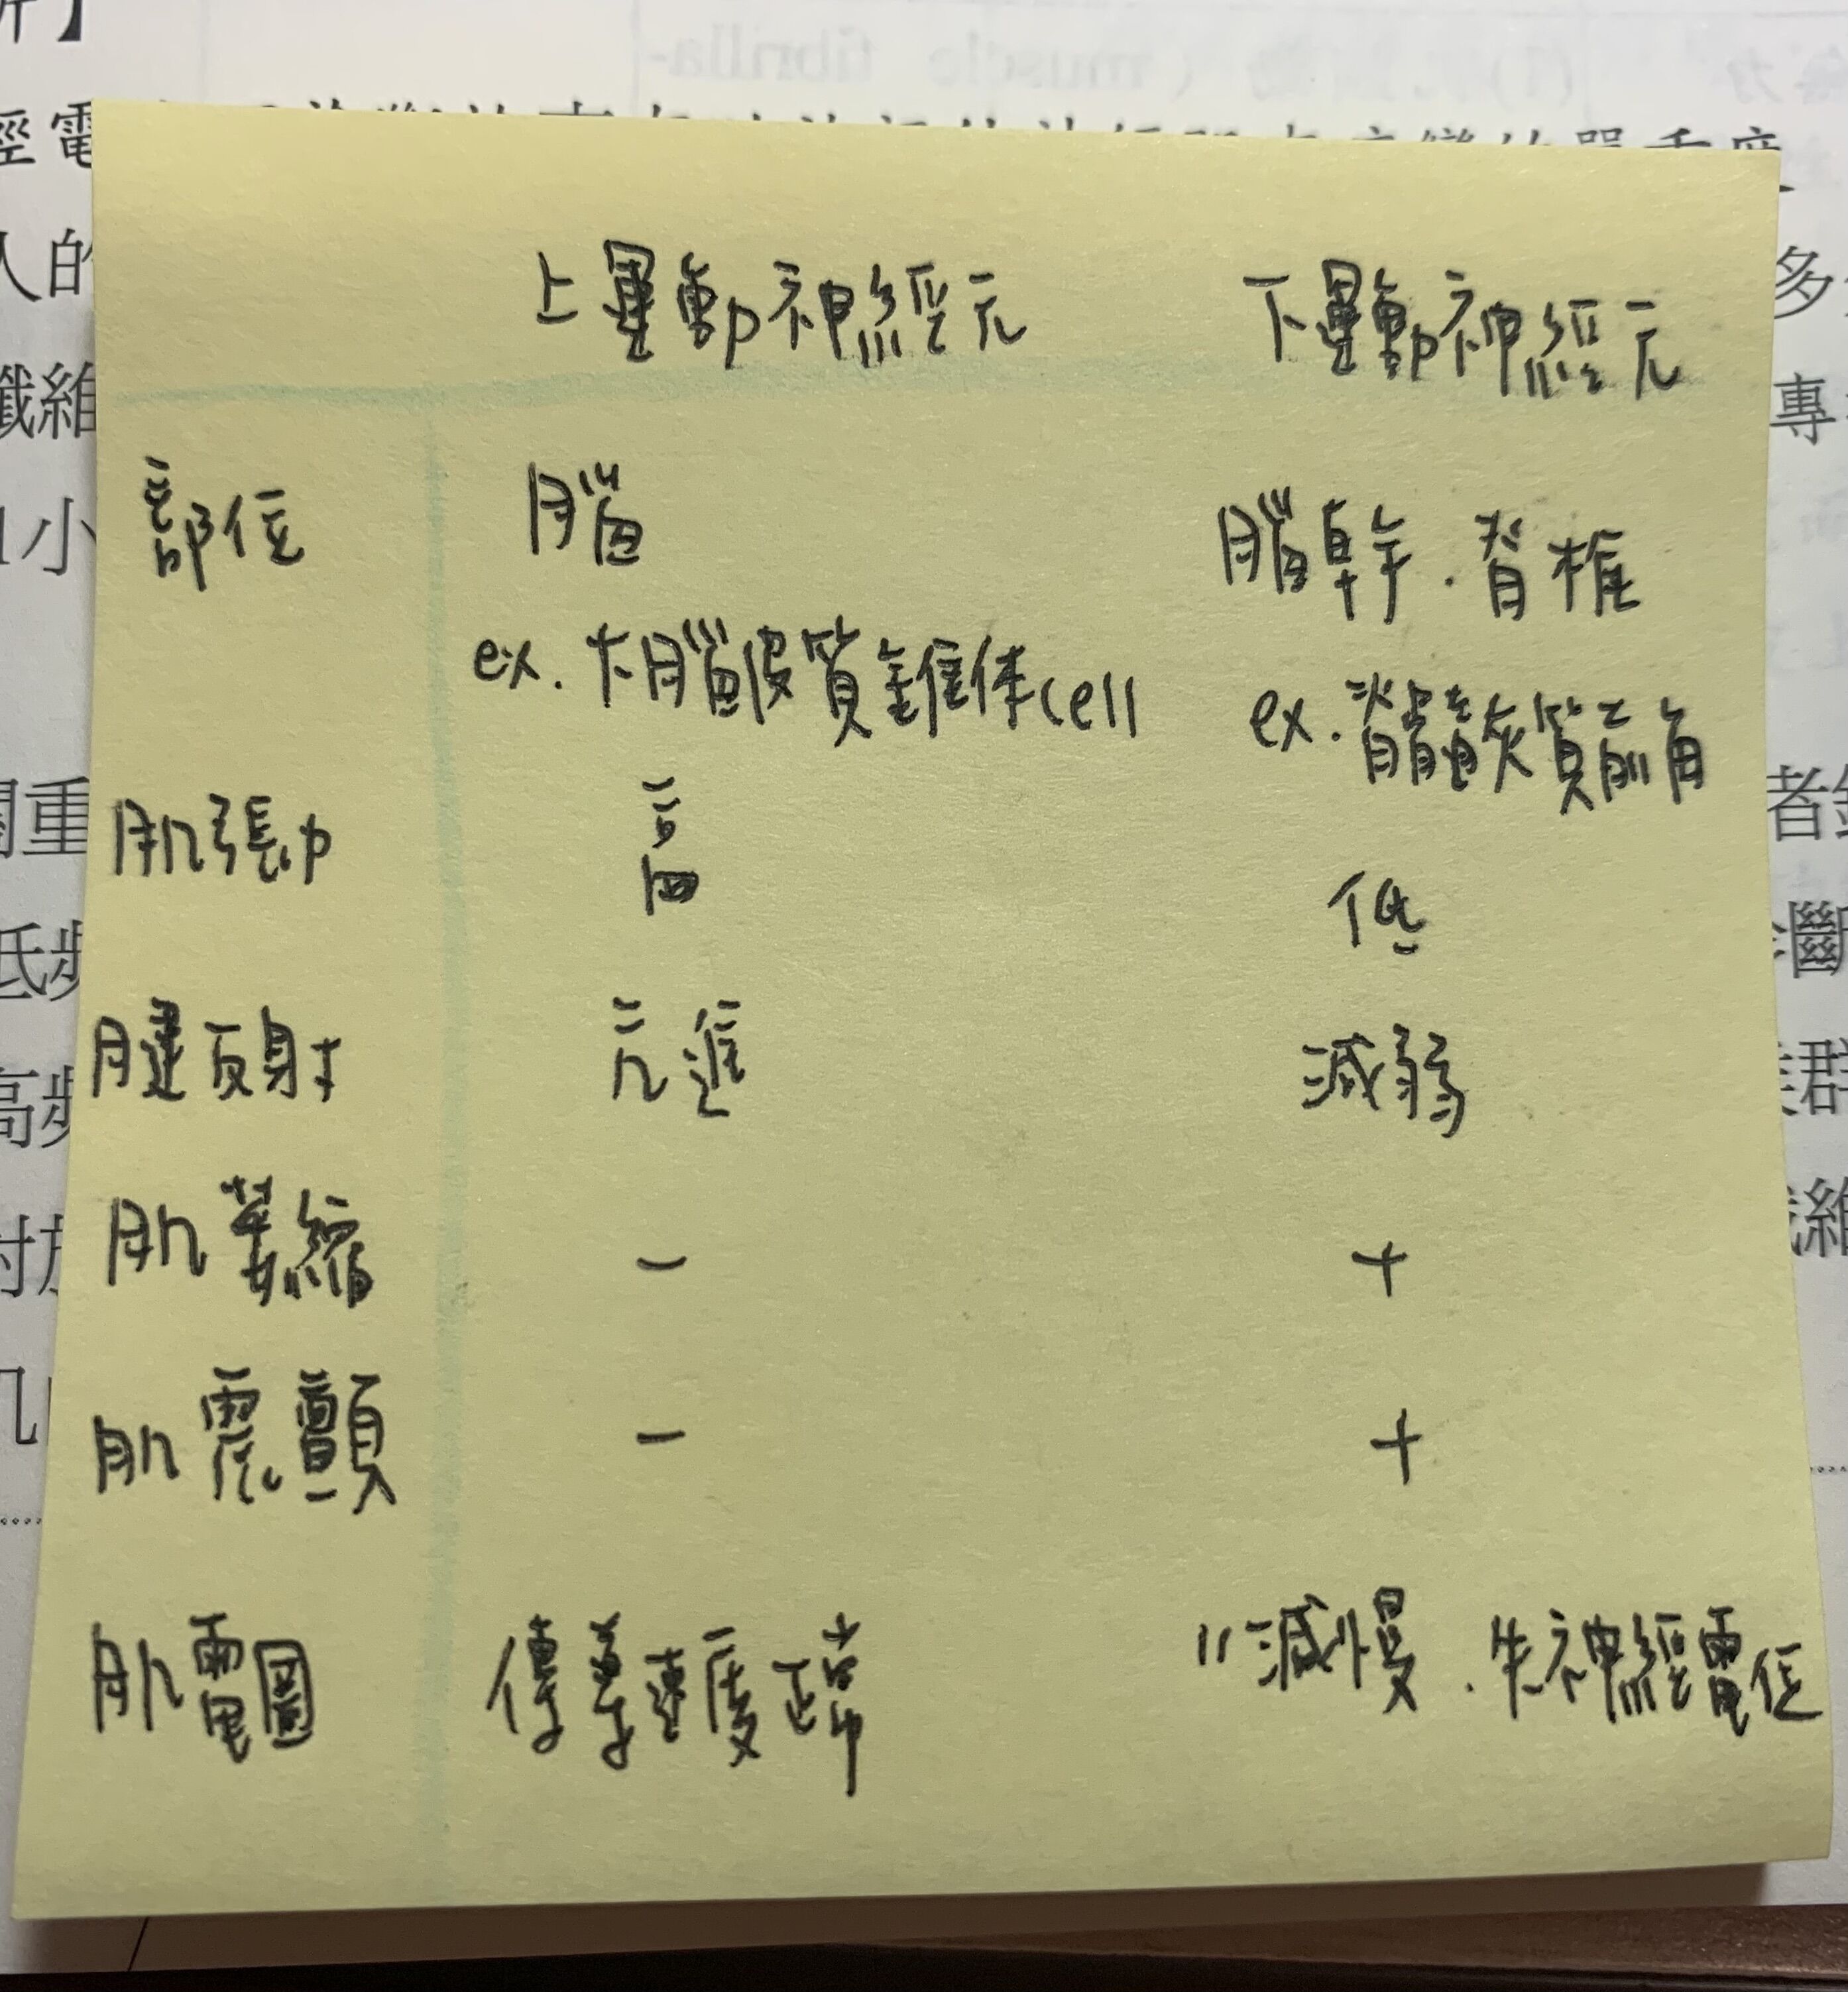 (1)肌顫動（muscle fibrilla-
經電
人的
多
纖維
專
1小
上運動神經元 下運動神經元
部位 腦 腦幹．脊椎
ex. 大腦皮質錐体cell ex. 脊髓灰質前角
肌張力 高 低
腱反射 亢進 減弱
肌萎縮 － ＋
肌震顫 － ＋
肌電圖 傳導速度正常 〃減慢．失神經電位
關重
者
低頻
斷
高頻
群
維